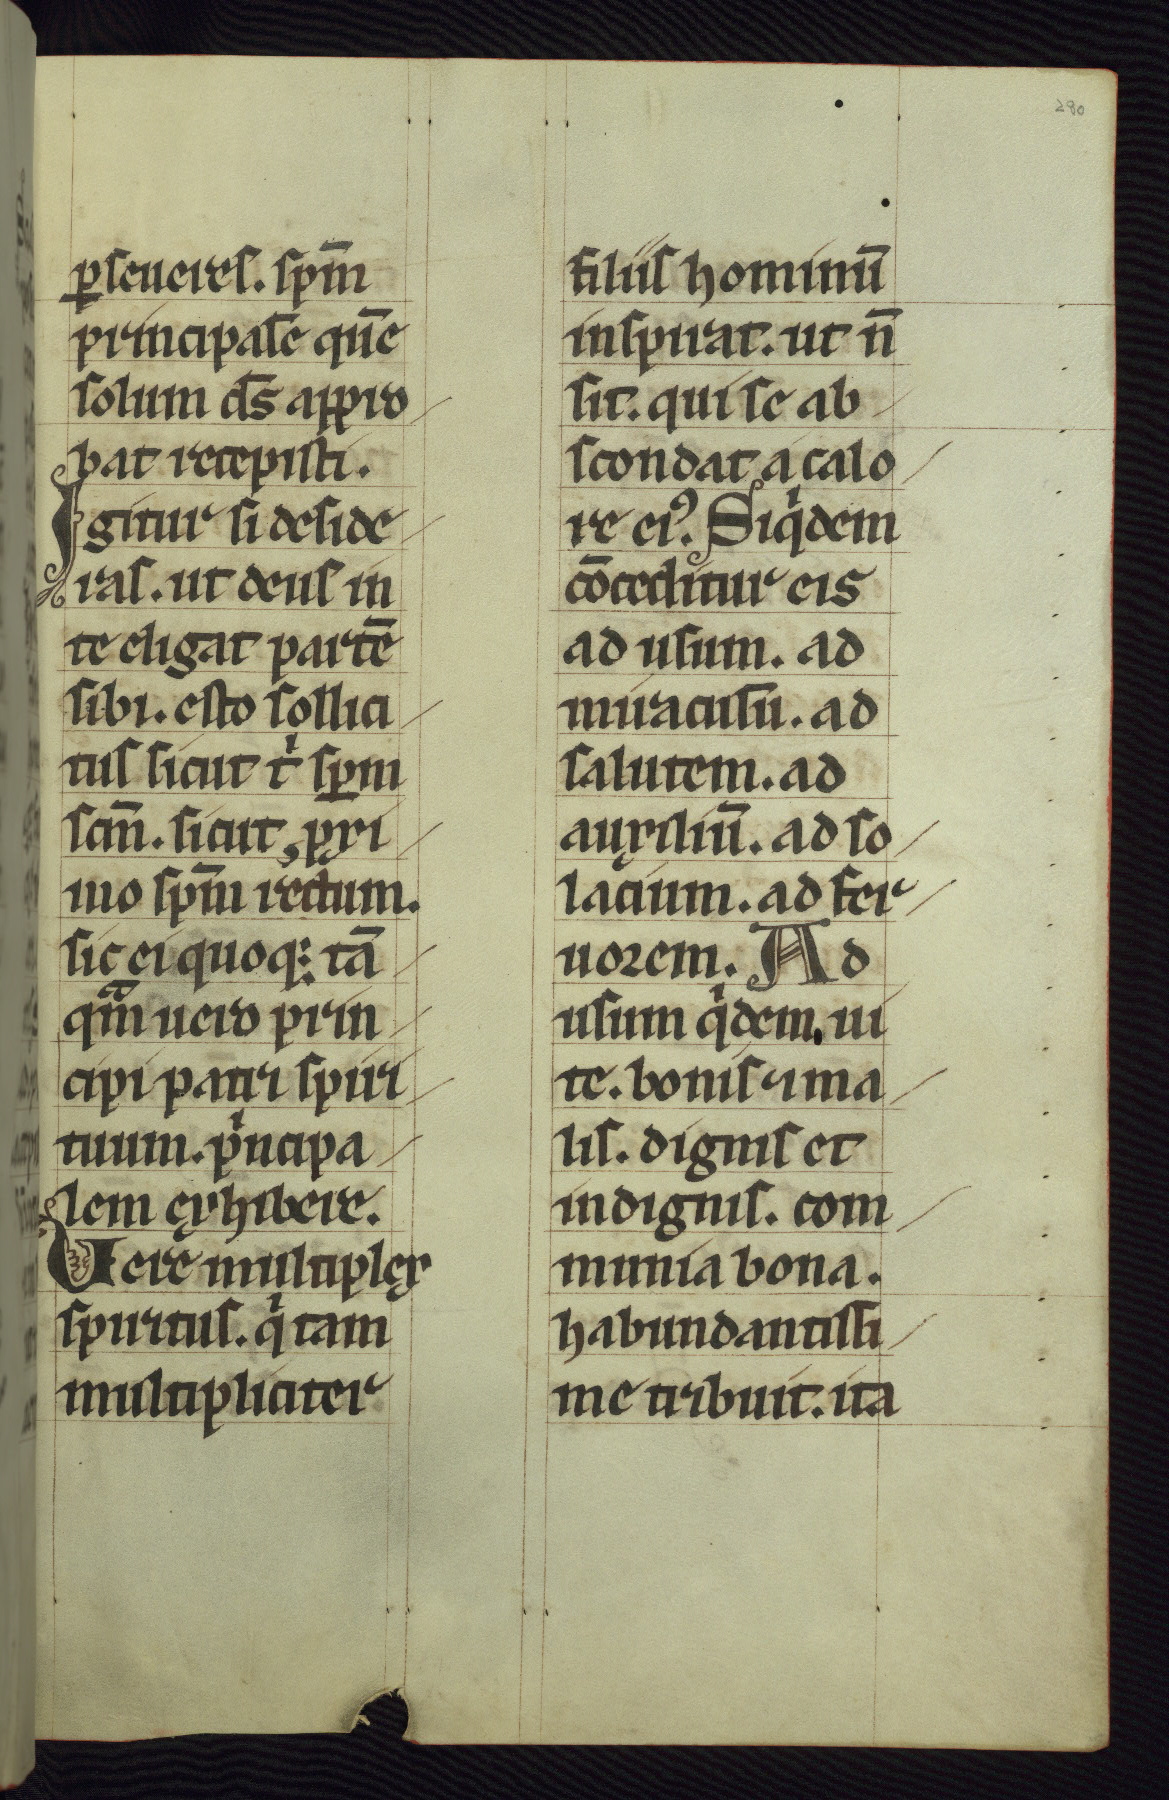 280
ꝑseueres. sp̄m
principalē que̅
solum dṡ appro
bat recepisti.
Igitur si deside
ras. ut deus in
te eligat partē
sibi. esto sollici
tus sicut tͥ spm
scm̄. sicut ꝓxi
mo spm̄ rectum.
sic ei quoq; tā
qᵃm̄ uero prin
cipi patri spiri
tuum. pͥncipa
lem exhibere.
Vere multiplex
spiritus. qͥ tam
multipliciter
filiis hominū
inspirat. ut n̄
sit. qui se ab
scondat a calo
re eiꝰ. Siqͥdem
cōceditur eis
ad usum. ad
miraculū. ad
salutem. ad
auxiliū. ad so
lacium. ad fer
uorem. Ad
usum qͥdem. ui
te. bonis ⁊ ma
lis. dignis et
indignis. com
munia bona.
habundantissi
me tribuit. ita